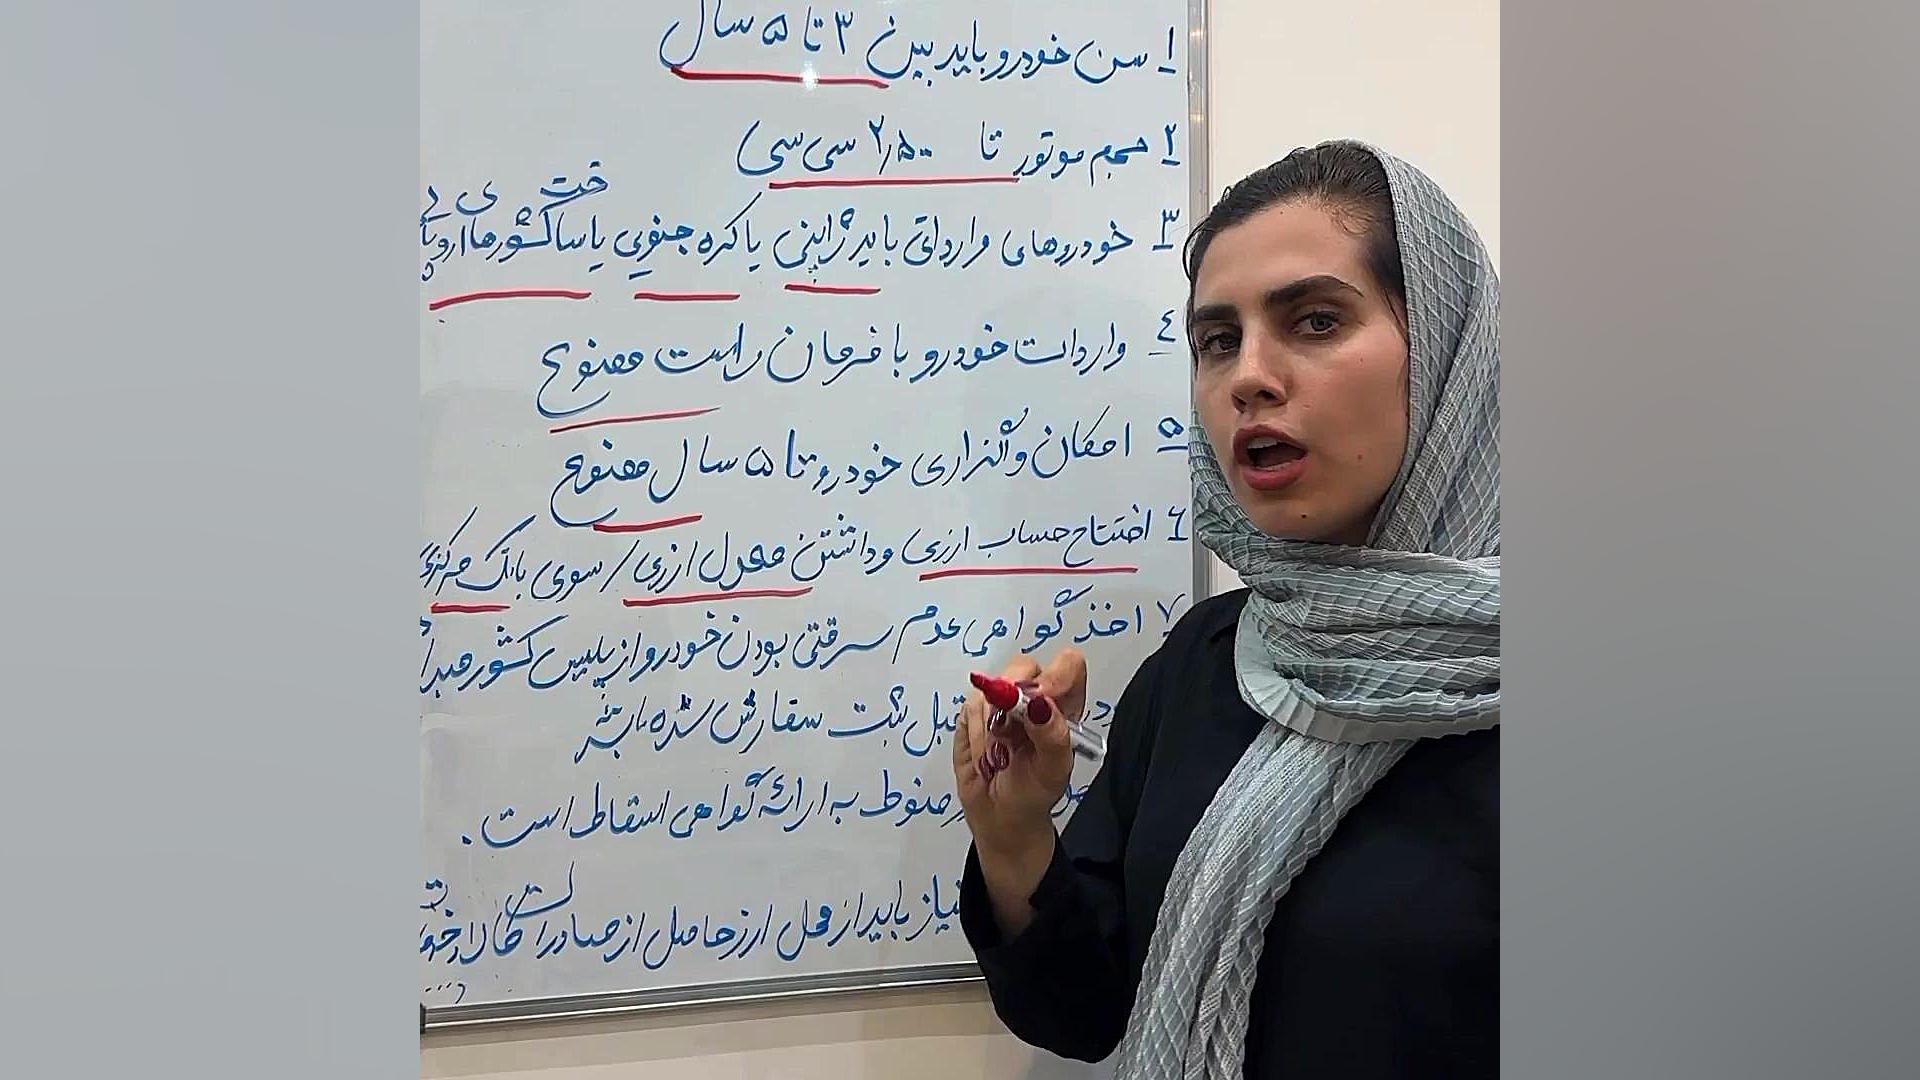 ۱ سن خودرو باید بین ۳ تا ۵ سال
۲ حجم موتور تا ۲٫۵۰۰ سی سی
۳ خودروهای وارداتی باید ژاپنی یا کره جنوبی یا ساخت کشورهای اروپایی
۴ واردات خودرو با فرمان راست ممنوع
۵ امکان واگذاری خودرو تا ۵ سال ممنوع
۶ افتتاح حساب ارزی و داشتن معدل ارزی / سوی بانک مرکزی
۷ اخذ گواهی عدم سرقتی بودن خودرو از پلیس کشور مبدا
قبل ثبت سفارش شده باشد
منوط به ارائه گواهی اسقاط است.
نیاز باید از محل ارز حاصل از صادرات کالا و خدمات